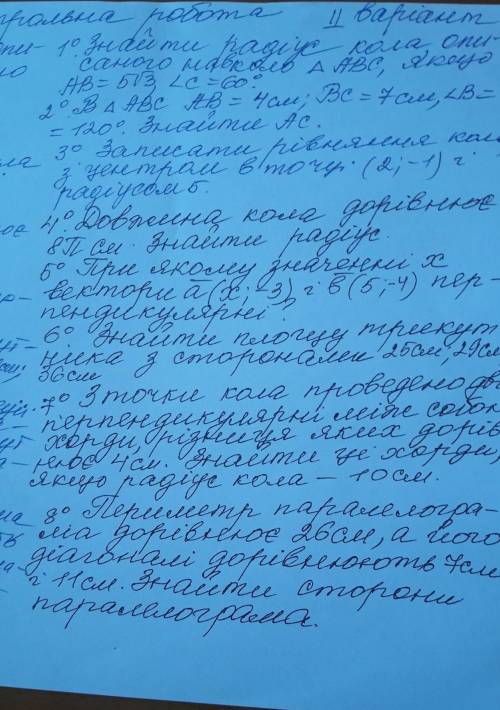 трольна робота II варіант
1° Знайти радіус кола, опи-
саного навколо △ ABC, якщо
AB = 5√3, ∠C = 60°
2° В △ ABC AB = 4см; BC = 7см, ∠B =
= 120°. Знайти AC.
3° Записати рівняння кола
з центром в точці (2; -1) і
радіусом 5.
4° Довжина кола дорівнює
8П см. Знайти радіус.
5° При якому значенні x
вектори a (x; -3) і b (5; -4) пер-
пендикулярні?
6° Знайти площу трикут-
ника з сторонами 25см, 29см
36см
7° З точки кола проведено дві
перпендикулярні між собою
хорди, різниця яких дорів-
нює 4см. Знайти ці хорди,
якщо радіус кола - 10см.
8° Периметр паралелогра-
ма дорівнює 26см, а його
діагоналі дорівнюють 7см
і 11см. Знайти сторони
паралелограма.